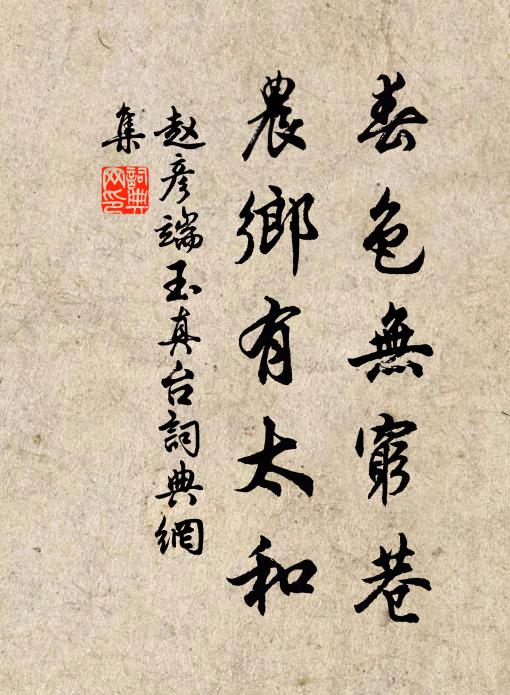 春色無窮巷
農鄉有太和
赵彦端玉真台詞典網
集
詞典网印